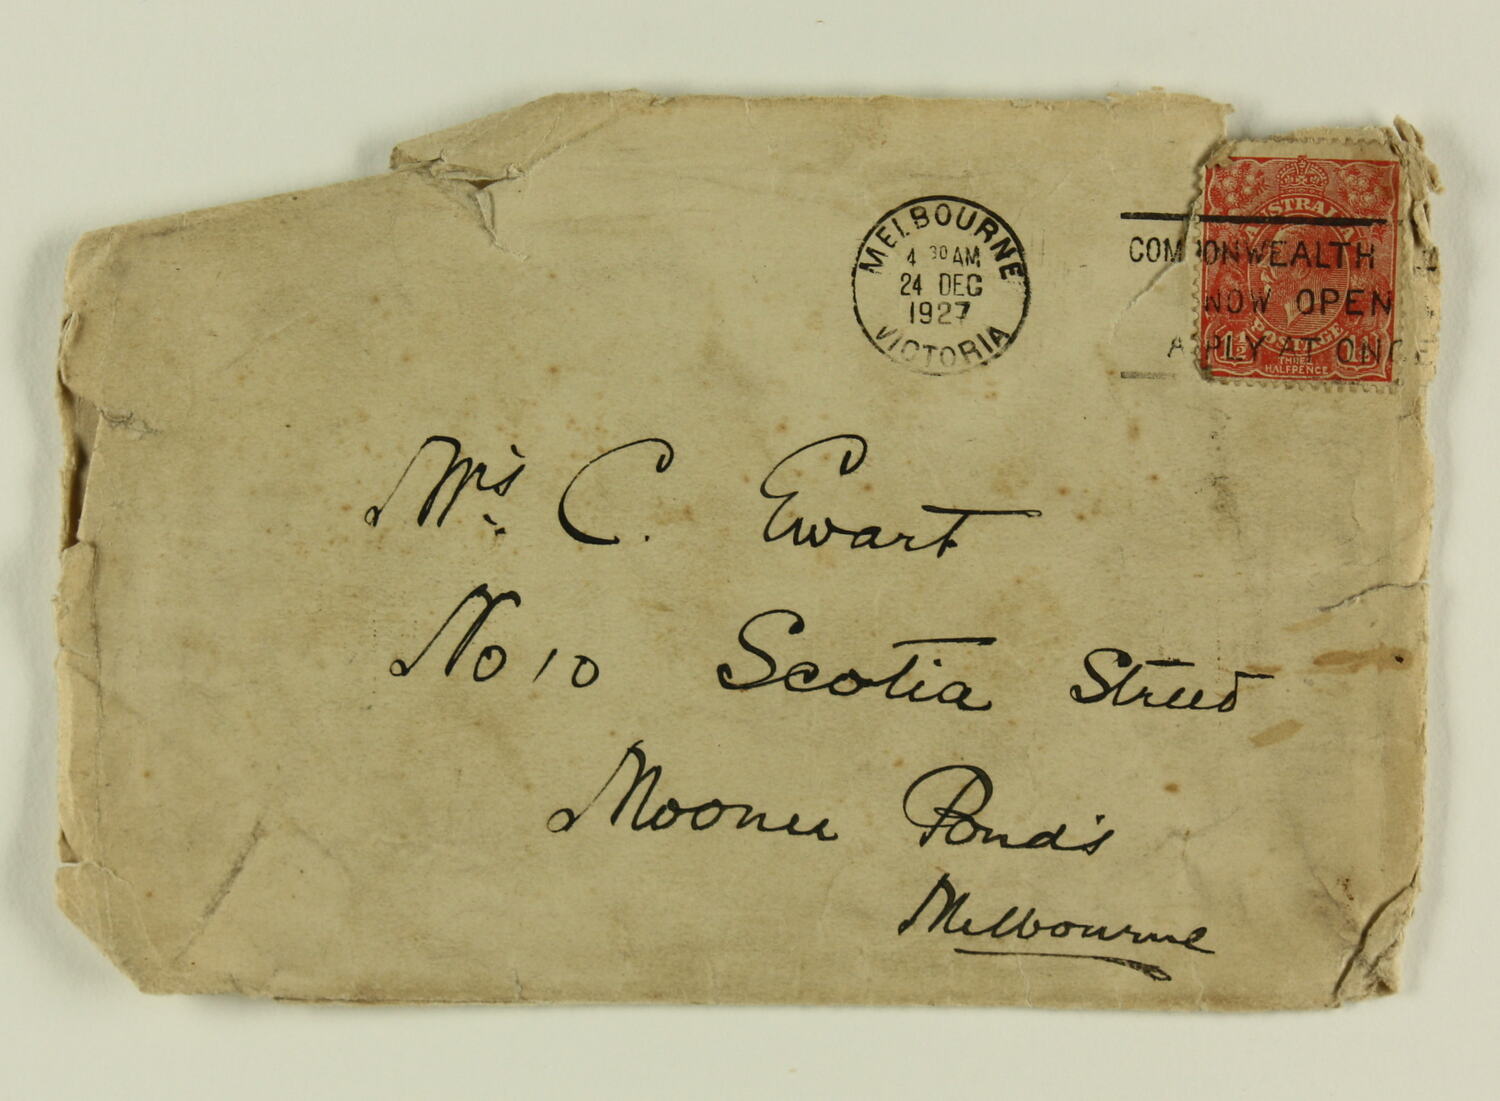 MELBOURNE
4 30 AM
24 DEC
1927
VICTORIA
COMMONWEALTH
NOW OPEN
APPLY AT ONCE
AUSTRALIA
POSTAGE
1½ 1½
THREE
HALFPENCE
Mrs. C. Ewart
No 10 Scotia Street
Moonee Pond's
Melbourne